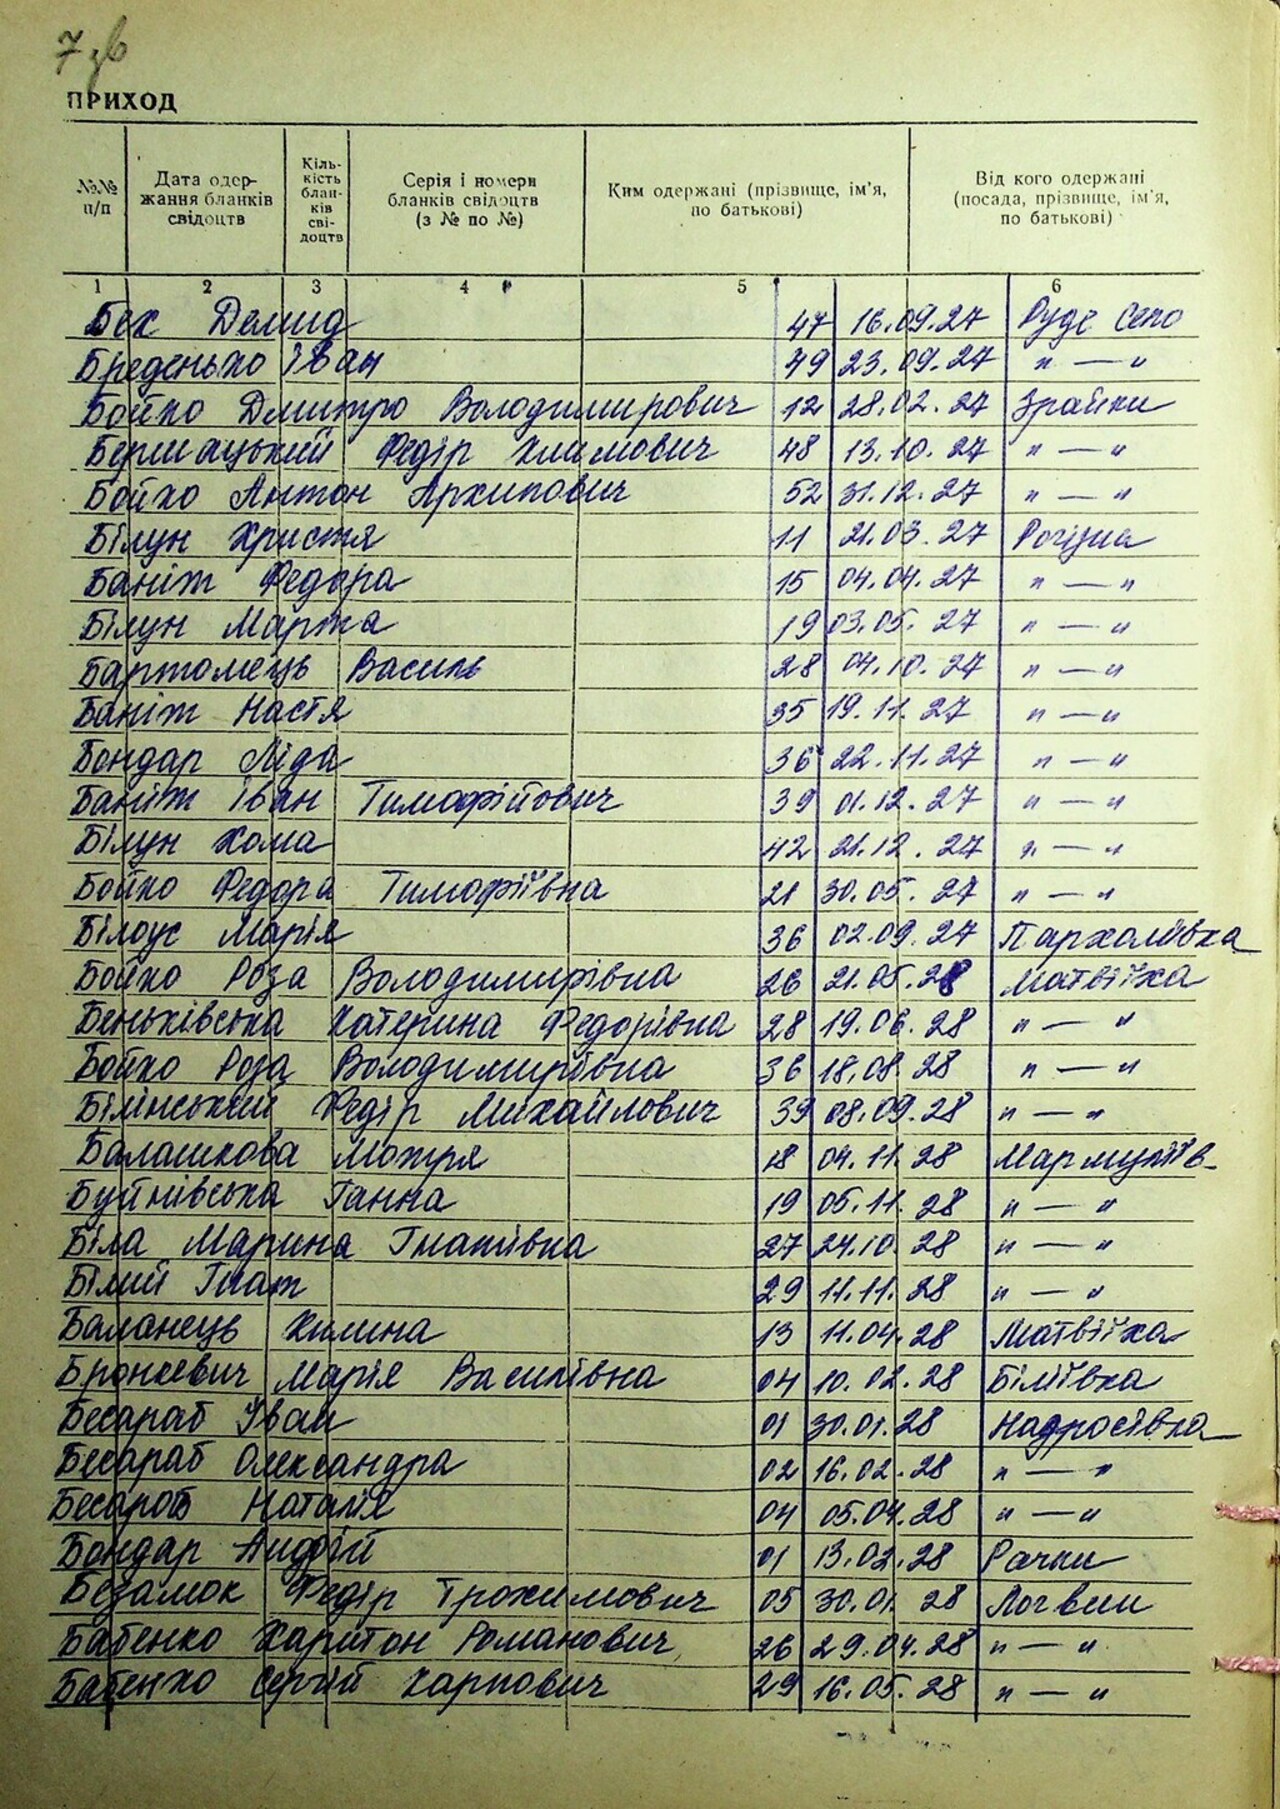 7 зв
ПРИХОД
№№ п/п
Дата одер-
жання бланків
свідоцтв
Кіль-
кість
блан-
ків
сві-
доцтв
Серія і номери
бланків свідоцтв
(з № по №)
Ким одержані (прізвище, ім'я,
по батькові)
Від кого одержані
(посада, прізвище, ім'я,
по батькові)
1 2 3 4 5 6
Бек Демид 47 16.09.27 Руде Село
Бреденько Іван 49 23.09.27 " — "
Бойко Дмитро Володимирович 12 28.02.27 Зрайки
Бермацький Федір Климович 48 13.10.27 " — "
Бойко Антон Архипович 52 31.12.27 " — "
Білун Христя 11 21.03.27 Рогізна
Баніт Федора 15 04.04.27 " — "
Білун Марта 19 03.05.27 " — "
Бартомець Василь 28 04.10.27 " — "
Баніт Настя 35 19.11.27 " — "
Бондар Ліда 36 22.11.27 " — "
Баніт Іван Тимофійович 39 01.12.27 " — "
Білун Хома 42 21.12.27 " — "
Бойко Федора Тимофіївна 21 30.05.27 " — "
Білоус Марія 36 02.09.27 Пархомівка
Бойко Роза Володимирівна 26 21.05.28 Матвіїха
Беньківська Катерина Федорівна 28 19.06.28 " — "
Бойко Роза Володимирівна 36 18.08.28 " — "
Білінський Федір Михайлович 39 08.09.28 " — "
Балашкова Мотря 18 04.11.28 Мармуліїв
Буйнівська Ганна 19 05.11.28 " — "
Біла Марина Гнатівна 27 24.10.28 " — "
Білий Гнат 29 11.11.28 " — "
Баланець Килина 13 11.04.28 Матвіїха
Бронкевич Марія Василівна 04 10.02.28 Біліївка
Бесараб Іван 01 30.01.28 Надросівка
Бесараб Олександра 02 16.02.28 " — "
Бесараб Наталія 04 05.04.28 " — "
Бондар Андрій 01 13.02.28 Рачки
Безамок Федір Трохимович 05 30.01.28 Логвин
Бабенко Харитон Романович 26 29.04.28 " — "
Бабенко Сергій Карпович 29 16.05.28 " — "